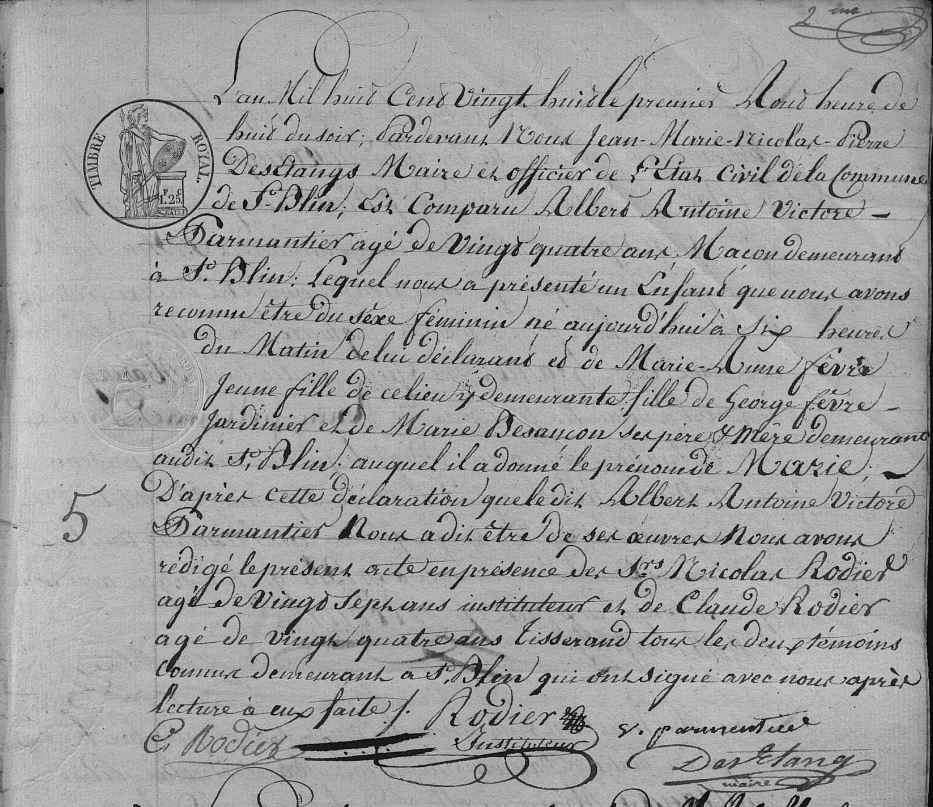 2 eme
L'an Mil huit Cent Vingt huit le premier Aout heure de
huit du soir; Pardevant Nous Jean-Marie-Nicolas-Pierre
DesEtangs Maire et officier de l'Etat Civil de la Commune
de St. Blin; Est Comparu Albert Antoine Victore –
Parmantier agé de Vingt quatre ans Maçon demeurant
à St. Blin: Lequel nous a présenté un Enfant que nous avons
reconnu être du séxe féminin né aujourd'hui à Six heures
du Matin de lui déclarant et de Marie-Anne fèvre
Jeune fille de ce lieu y demeurante fille de George fêvre –
Jardinier et de Marie Besançon ses père & Mère demeurant
audit St. Blin: auquel il a donné le prénom de Marie; –
D'après cette déclaration que le dit Albert Antoine Victore
Parmantier Nous a dit être de ses œuvres Nous avons
rédigé le présent acte en présence des Srs Nicolas Rodier
agé de Vingt Sept ans instituteur et de Claude Rodier
agé de vingt quatre ans Tisserand tous les deux témoins
connus demeurant à St. Blin qui ont signé avec nous après
lecture à eux faite /.
Rodier
Instituteur
C. Rodier
v. parmentier
DesEtang
maire
TIMBRE ROYAL.
1.F 25.C
5